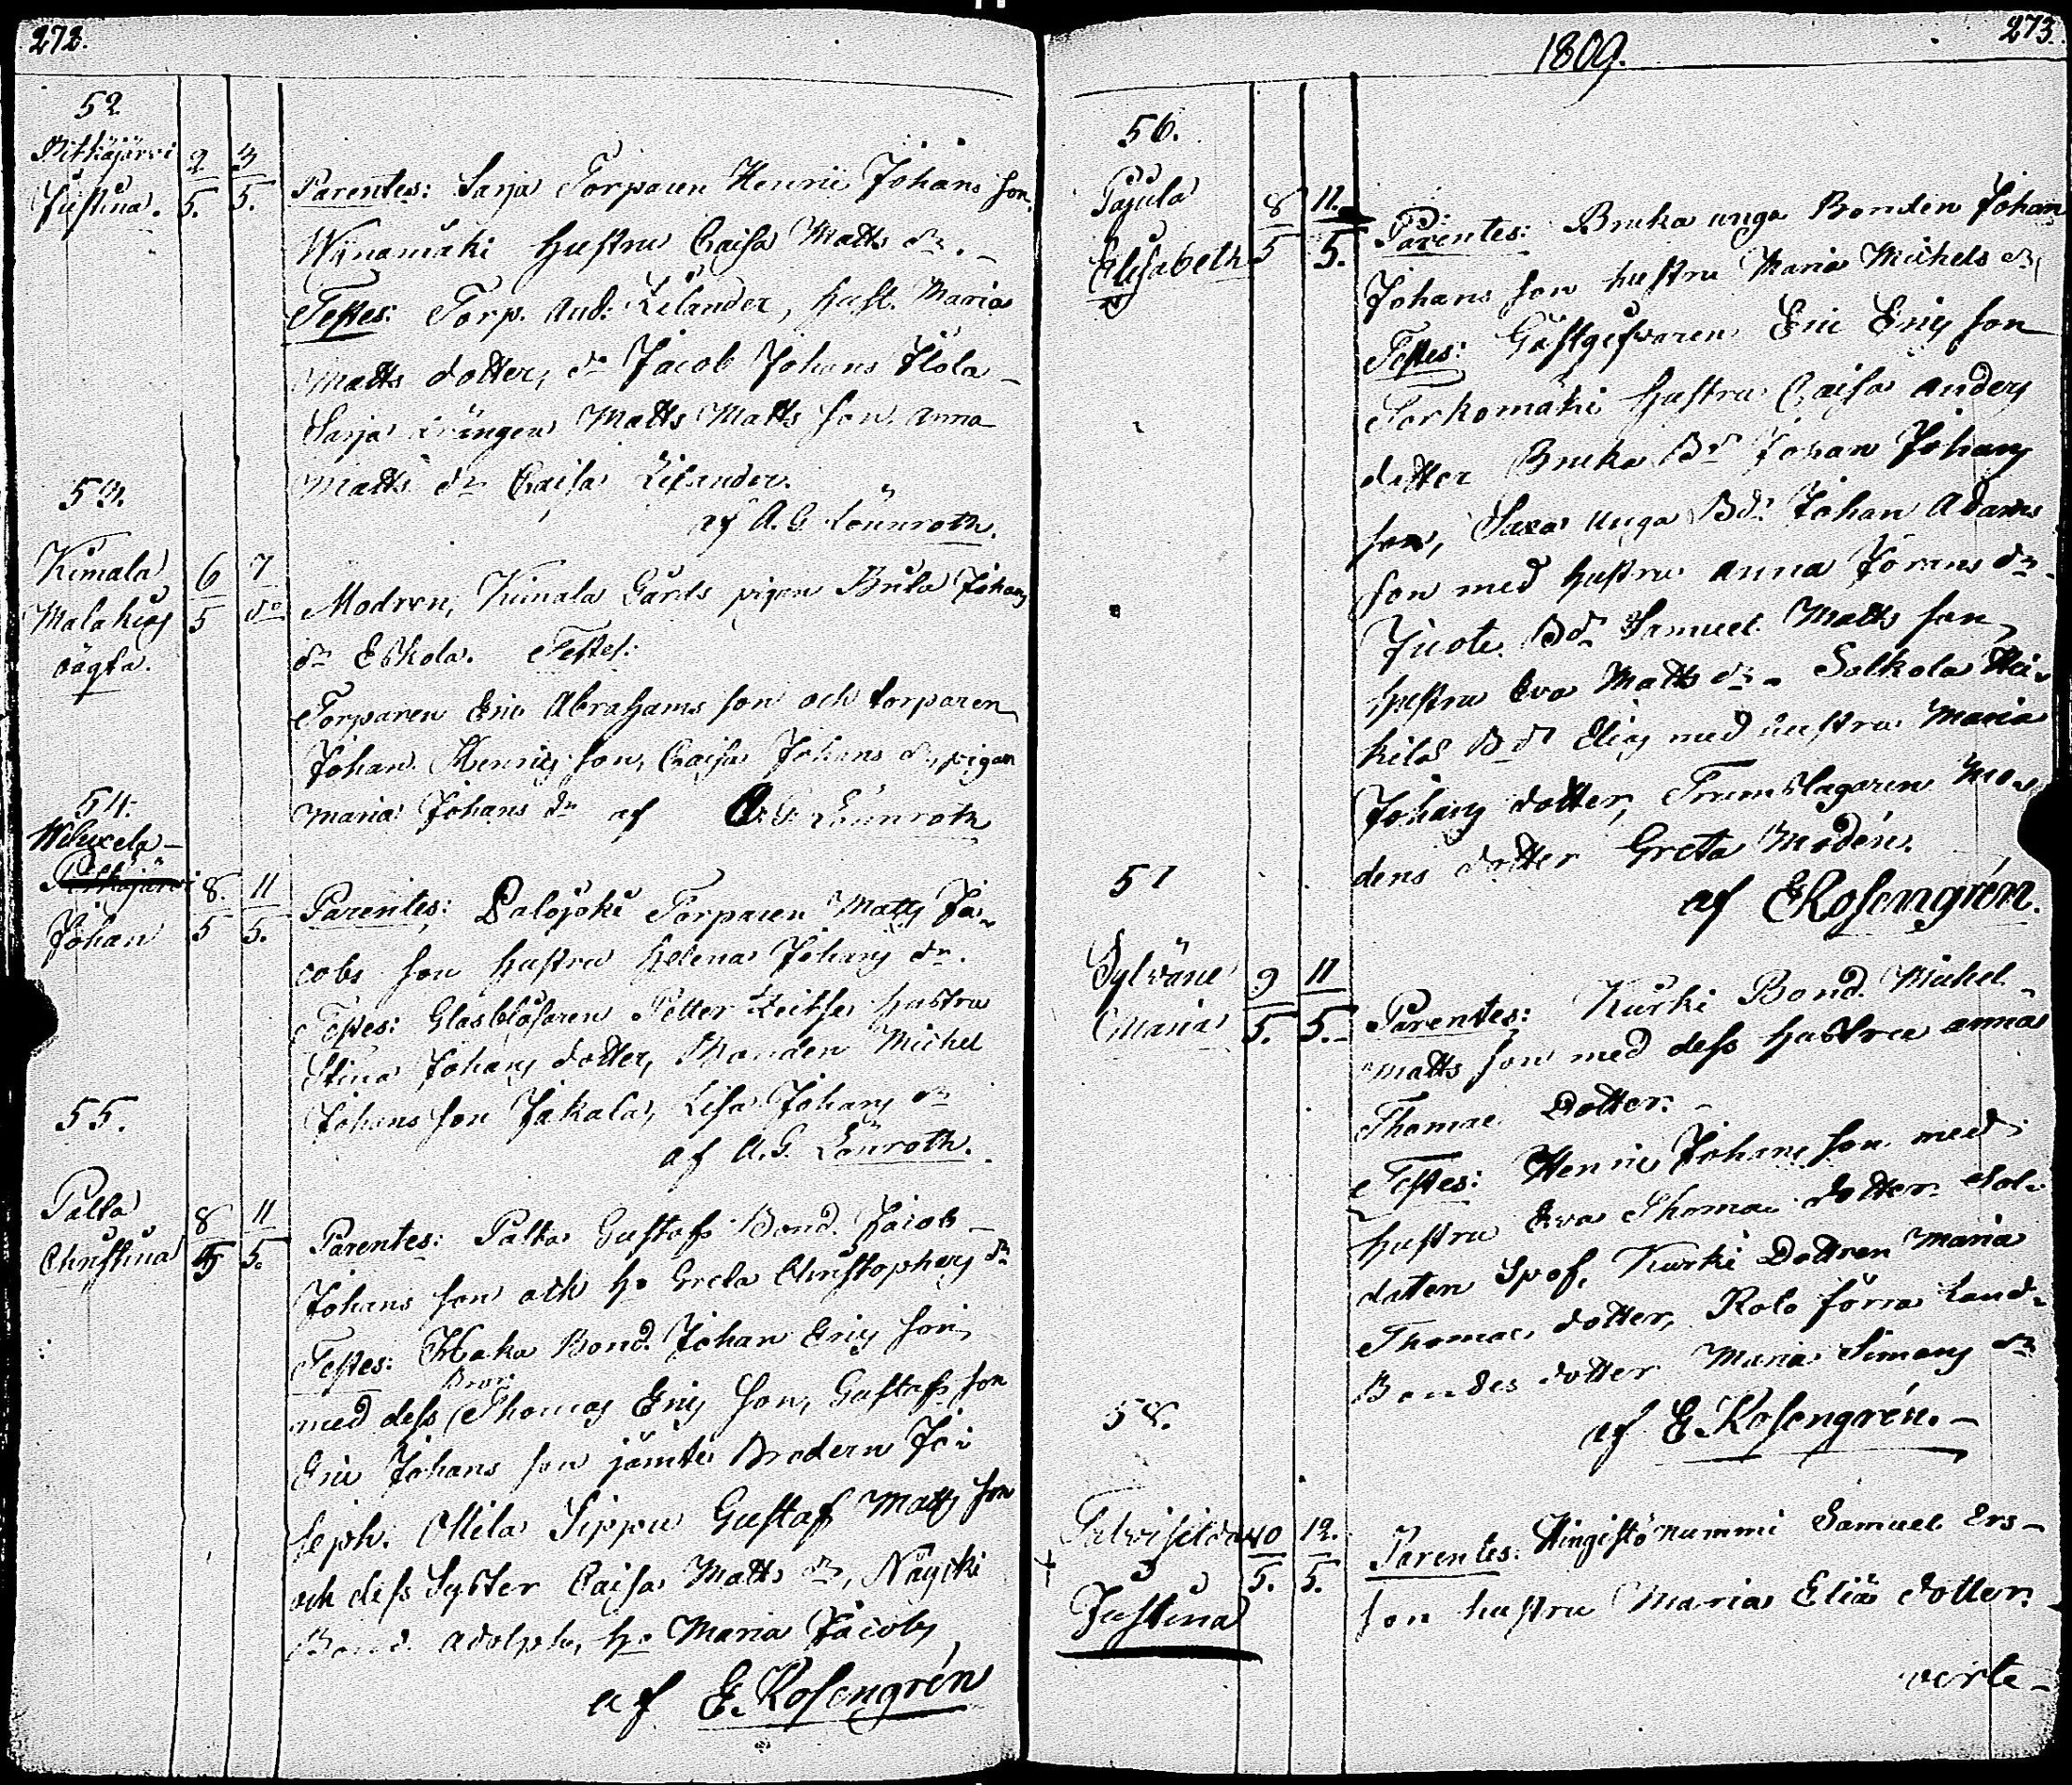 272.
52.
Pitkäjärvi
Justina.
2/5.
3/5.
Parentes: Sarja Torparen Henric Johans son
Wijnamäki hustru Caisa Matts dr.
Testes: Torp. And: Lilander, hust. Maria
Matts dotter, dr Jacob Johans
Sarja Drängen Matts Matts son, Anna
Matts dr Caisa Lilander.
af A. G. Lönnroth.
53.
Kimala
Malakias
oägta.
6/5
7/do
Modren, Kimala Gårds pigan Brita Johans
dr Eskola. Testes:
Torparen Eric Abrahams son och torparen
Johan Henrics son, Caisa Johans dr, pigan
Maria Johans dr af A. G. Lönnroth
54.
Pitkäjärvi
Johan
8/5
11/5.
Parentes: Palojoki Torparen Matts Ja-
cobs son hustru Helena Johans dr.
Testes: Glasblåsaren Petter hustru
Stina Johans dotter, Michel
Johans son Jakala, Lisa Johans dr
af A. G. Lönroth.
55.
Palta
Christina
8/5
11/5.
Parentes: Palta Gustafs Bond. Jacob
Johans son och h. Greta Christophers dr
Testes: Haka Bond. Johan Erics son
Bror
med dess Thomas Erics son, Gustafs son
Eric Johans son jämte Brodern Jo-
seph. Ollila Sippu Gustaf Matts son
och dess Syster Caisa Matts dr,
Bond. Adolph, h. Maria Jacobs
af E. Rosengrén
1809.
273.
56.
Pajula
Elisabeth
8/5
11./5.
Parentes: Bruka unga Bonden Johan
Johans son hustru Maria Michels dr
Testes: Gästgifvaren Eric Erics son
Torkomäki hustru Caisa Anders
dotter Bruka Bd Johan Johans
son, Saxa unga Bd. Johan Adams
son med hustru Anna Jörans dr.
Bd Samuel Matts son,
hustru Eva Matts dr. Salkola Hei-
kilä Bd Elias med hustru Maria
Johans dotter, Trumslagaren Mo-
dens dotter Greta Modén.
af E Rosengrén.
57
Sylväne
Maria
9/5.
11/5.
Parentes: Kurki Bond. Michel
Matts son med dess hustru Anna
Thomae Dotter.
Testes: Henric Johans son med
hustru Eva Thomae dotter Sol-
daten Spof, Kurki Dottren Maria
Thomae dotter, Rolo förra Land-
Bondes dotter Maria Simons dr
af E. Rosengrén.
58.
Talvisilda
Justina
10/5.
12./5.
Parentes: Hingistönummi Samuel Ers-
son hustru Maria Eliä dotter.
verte